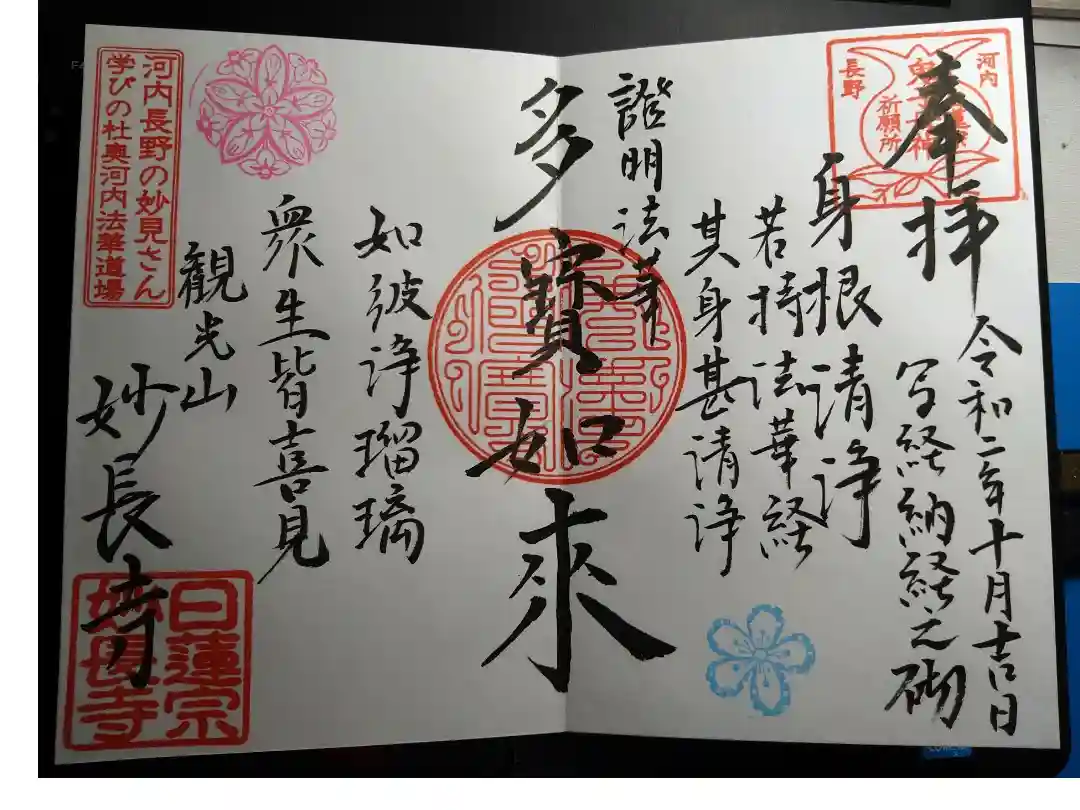 奉拝
令和二年十月吉日
写経納経之砌
身根清浄
若持法華経
其身甚清浄
證明法華
多寳如来
如彼浄瑠璃
衆生皆喜見
観光山
妙長寺
河内
長野
祈願所
河内長野の妙見さん
学びの杜奥河内法華道場
日蓮宗
妙長寺